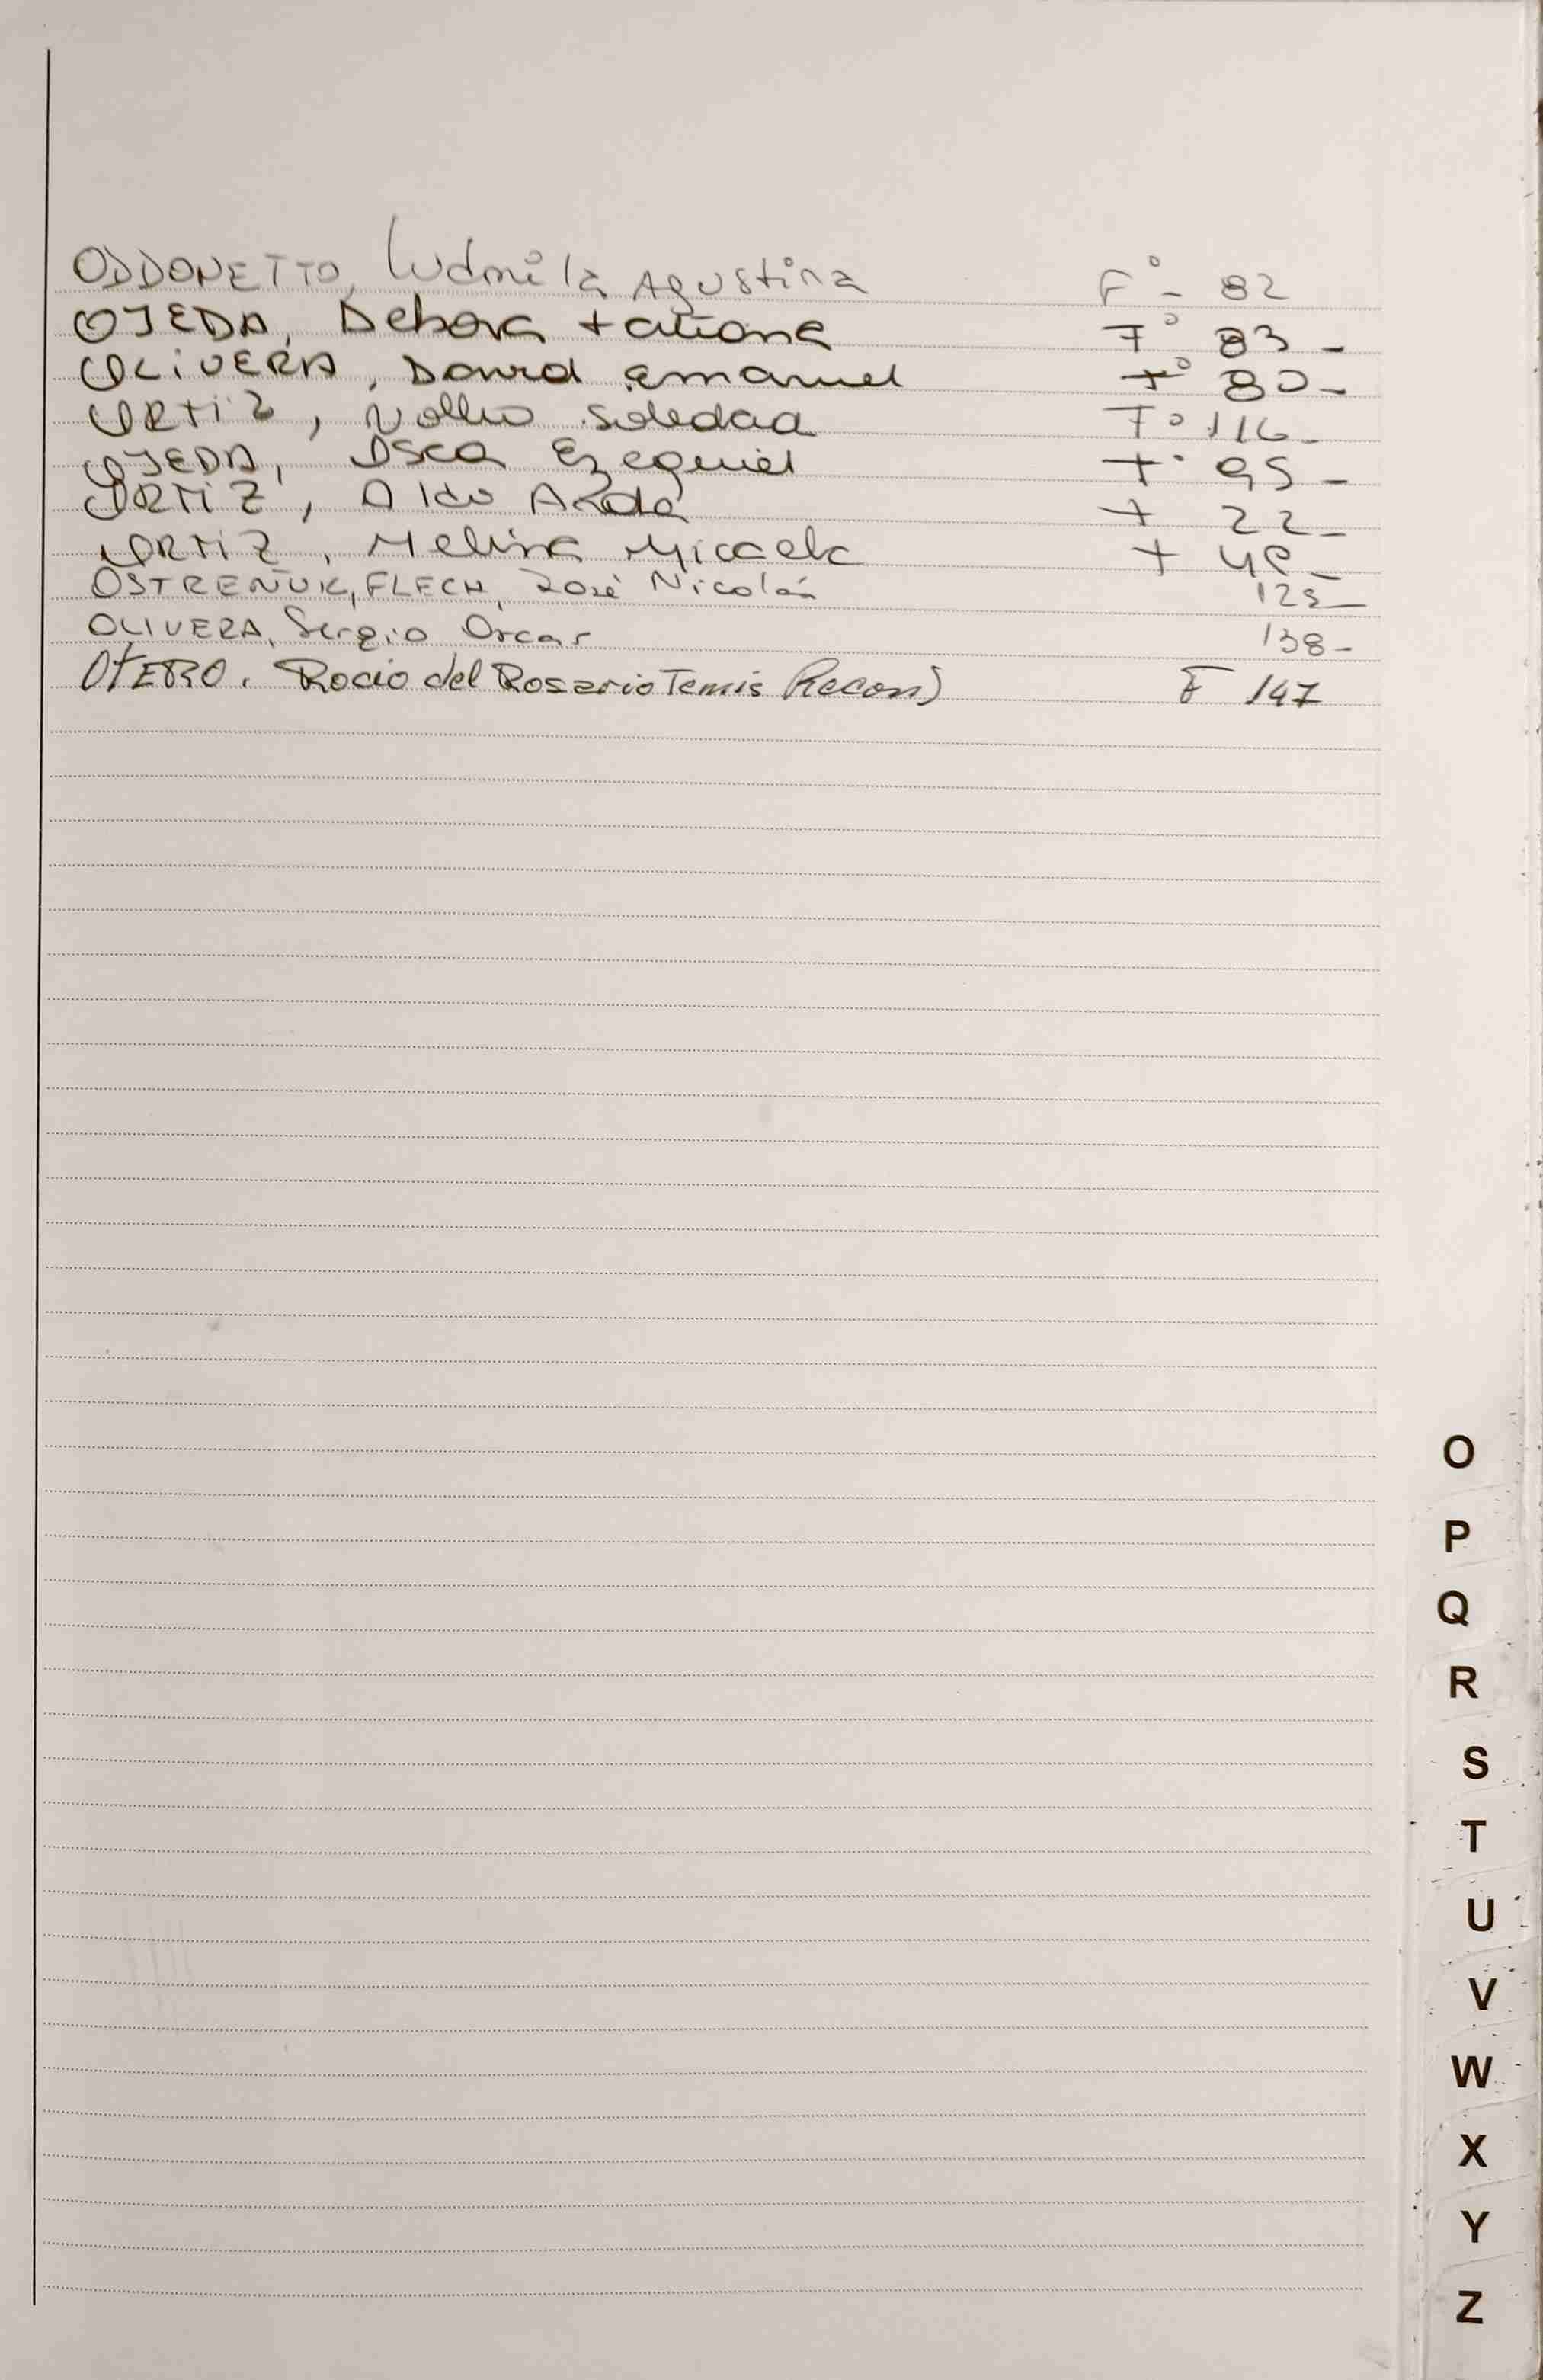 ODDONETTO, Ludmila Agustina F° - 82
OJEDA, Debora tatiana F° 83 -
OLiVERA, David Emanuel F° 80 -
ORtiz, Soledad F° 116 -
OJEDA, Osca Ezequiel F° 95 -
ORTiZ, Aldo F 22 -
ORTiZ, Melina Micaela F
OSTREÑUK, FLECH, José Nicolás 125 -
OLIVERA, Sergio Oscar 138 -
OtERO. Rocio del Rosario Temis F 147
O
P
Q
R
S
T
U
V
W
X
Y
Z